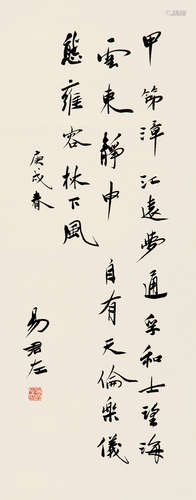 甲節漳江遠夢通孚和士望海
雲東靜中自有天倫樂儀
態雍容林下風
庚戌春
易君左